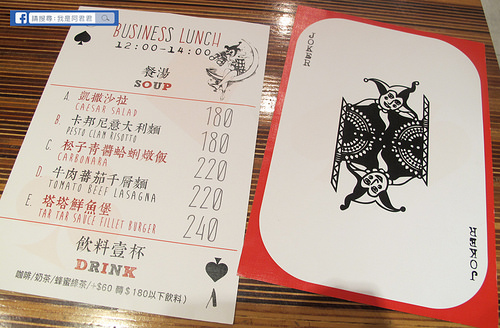 請搜尋:我是阿君君
BUSINESS LUNCH
12:00-14:00
餐湯
SOUP
A. 凱撒沙拉 180
CAESAR SALAD
B. 卡邦尼意大利麵 180
PESTO CLAM RISOTTO
C. 松子青醬蛤蜊燉飯 220
CARBONARA
D. 牛肉蕃茄千層麵 220
TOMATO BEEF LASAGNA
E. 塔塔鮮魚堡 240
TAR TAR SAUCE FILLET BURGER
飲料壹杯
DRINK
咖啡/奶茶/蜂蜜綠茶/+$60 購$180以下飲料)
A
JOKER
JOKER